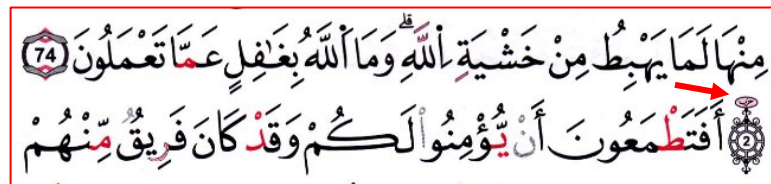 مِنْهَا لَمَا يَهْبِطُ مِنْ خَشْيَةِ اِ۬للَّهِۖ وَمَا اَ۬للَّهُ بِغَٰفِلٍ عَمَّا تَعْمَلُونَ 74
حزب 2 أَفَتَطْمَعُونَ أَنْ يُّؤْمِنُواْ لَكُمْ وَقَدْ كَانَ فَرِيقٌ مِّنْهُمْ